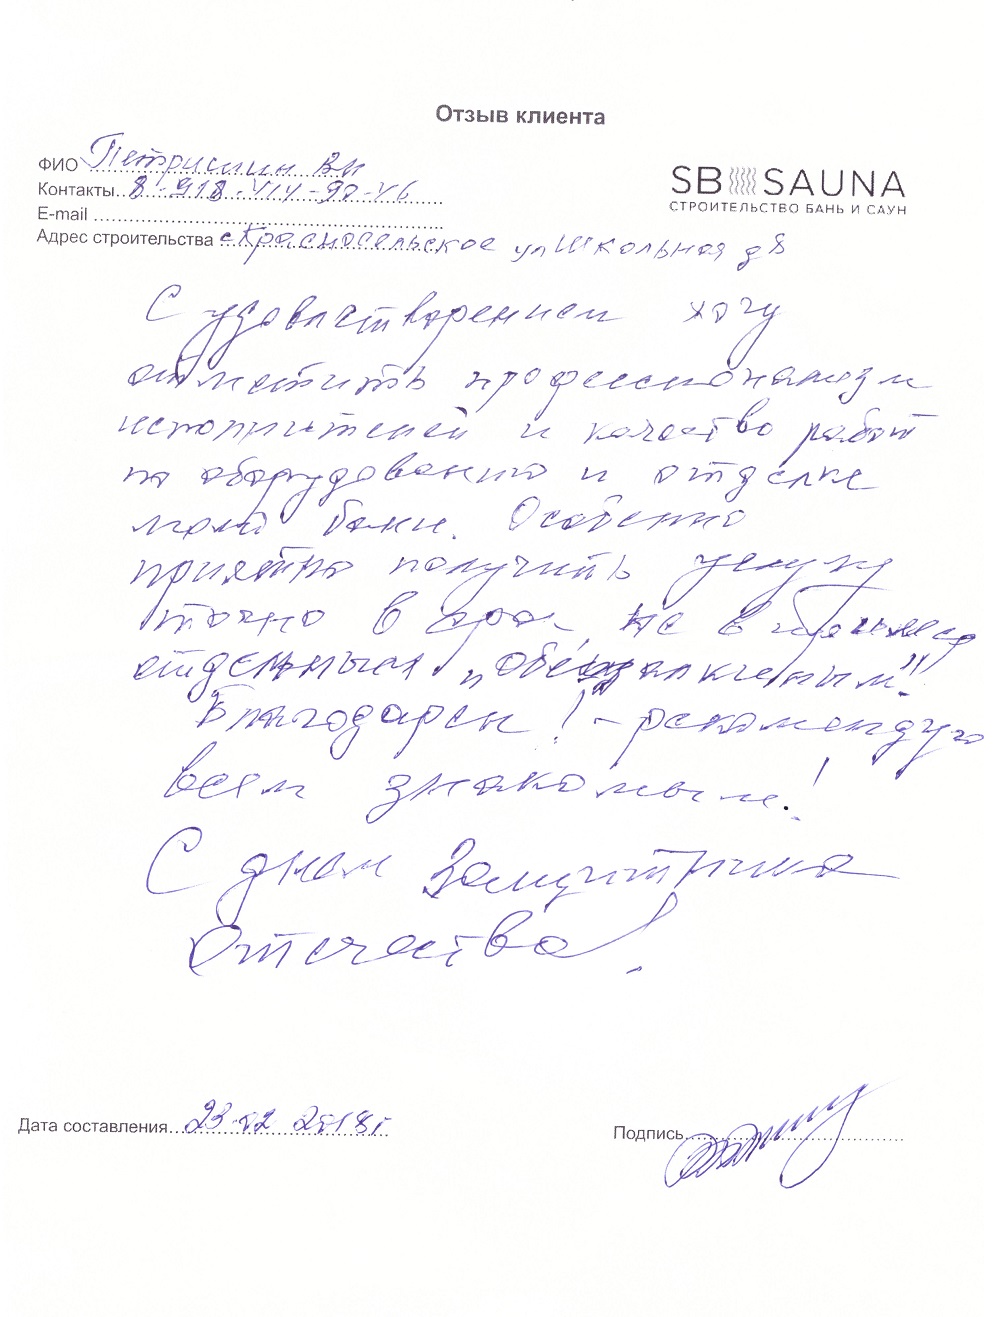 Отзыв клиента
ФИО Петришин ВН
Контакты 8-918-414-90-46
SB SAUNA
СТРОИТЕЛЬСТВО БАНЬ И САУН
E-mail
Адрес строительства с Красносельское ул Школьная д 8
С удовлетворением хочу
отметить профессионализм
исполнителей и качество работ
по оборудованию и отделке
моей бани. Особенно
приятно получить услугу
точно в срок, не в
отдельным "обещалкиным".
Благодарен! - рекомендую
всем знакомым!
С днем Защитника
Отечества!
Дата составления 23.02 2018г
Подпись